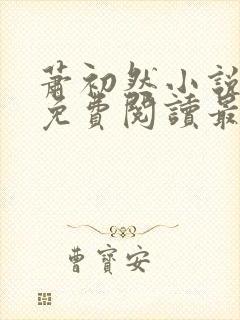 蕭初然小說
免費閱讀最
曹寶安